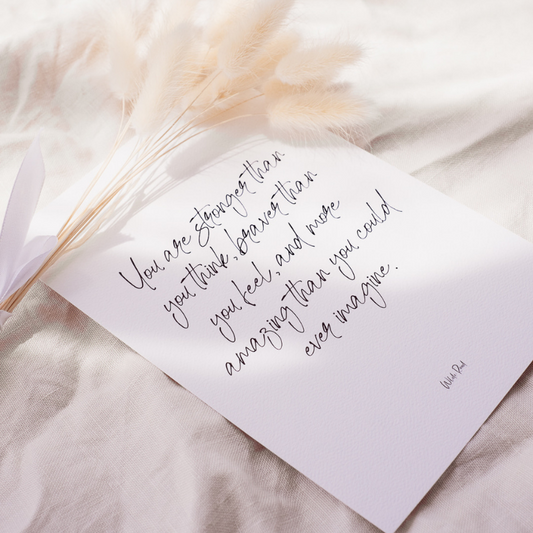 You are stronger than
you think, braver than
you feel, and more
amazing than you could
ever imagine.